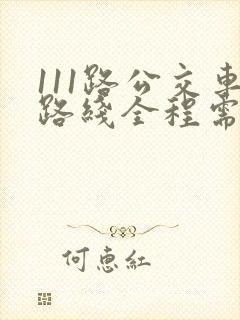 111路公交車
路綫全程需
何惠紅